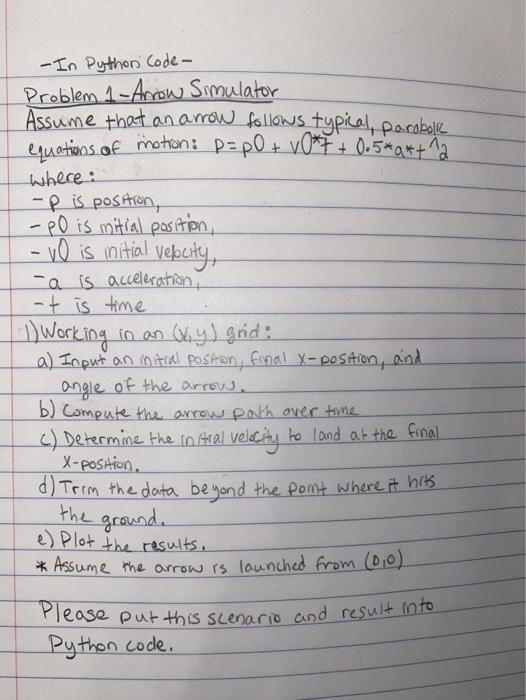 - In Python Code -
Problem 1 - Arrow Simulator
Assume that an arrow follows typical, parabolic
equations of motion: p = p0 + v0*t + 0.5*a*t^2
where:
- p is position,
- p0 is initial position,
- v0 is initial velocity,
- a is acceleration,
- t is time
1) Working in an (x,y) grid:
a) Input an initial position, final x-position, and
angle of the arrow.
b) Compute the arrow path over time
c) Determine the initial velocity to land at the final
X-position.
d) Trim the data beyond the point where it hits
the ground.
e) Plot the results.
* Assume the arrow is launched from (0,0)
Please put this scenario and result into
Python code.